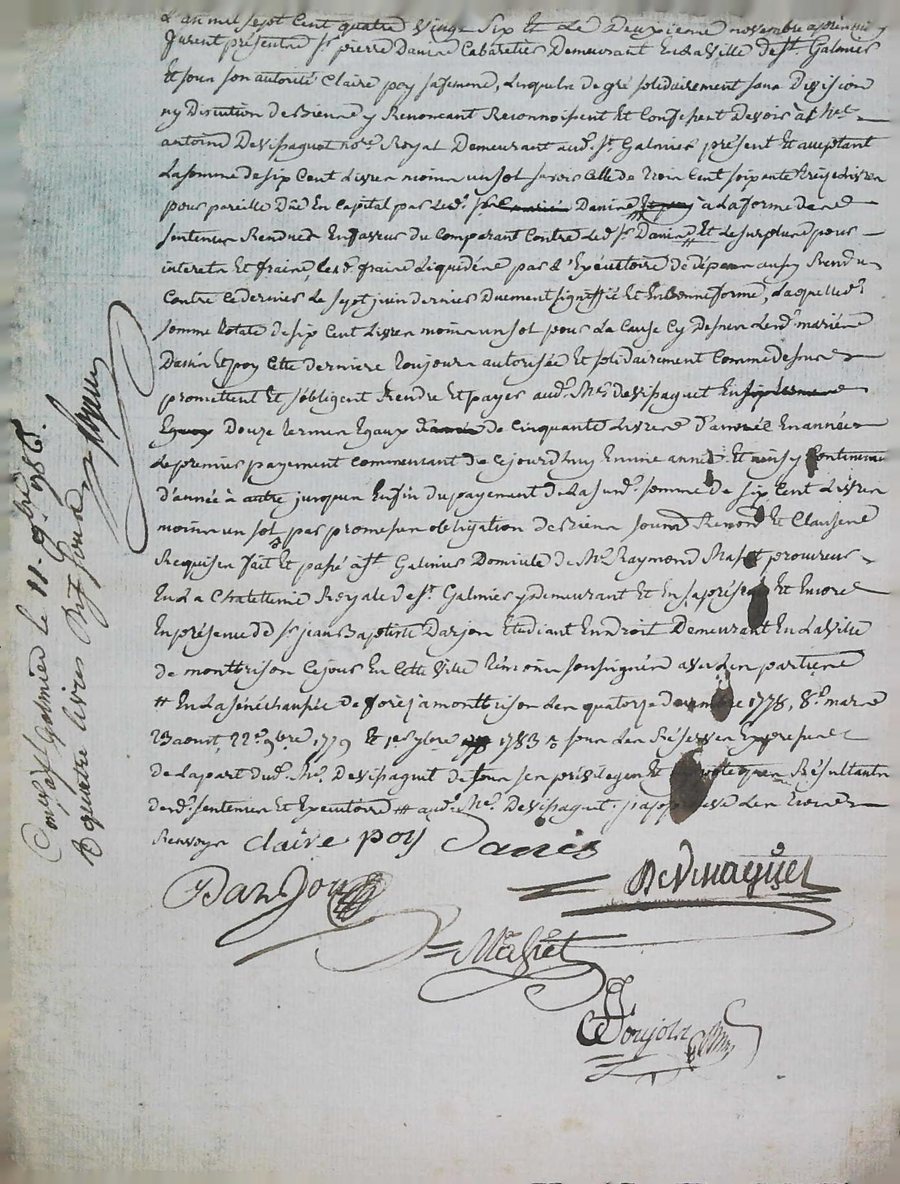 L'an mil sept cent quatre vingt six et le deuxieme novembre apres midy
furent présents sr pierre Danire Cabaretier demeurant en la ville de st. Galmier
Et sous son autorité Claire poy sa femme, lesquels de gré solidairement sans Division
ny Discution de Biens y Renonçant Reconnoissent Et Confessent devoir à Me
antoine Devissaguet nore. Royal Demeurant aud. st. Galmier présent Et acceptant
La somme de six Cent Livres moins un sol savoir celle de trois Cent soixante treize Livres
pour pareille Düe En Capital par led. sr Danire à la forme de
sentences Rendues En faveur du Comparant Contre led. sr Danire Et le surplus pour
interets Et fraix, les d. fraix Liquidés par l'Exécutoire de dépens aussy Rendu
Contre ce dernier Le sept juin dernier Duement signiffié Et En bonne forme, Laquelle d.
somme totale de six Cent Livres moins un sol pour La Cause Cy Dessus Les d. mariés
Danire Et poy Cette derniere toujours autorisée Et solidairement Comme dessus
promettent Et s'obligent Rendre Et payer aud. Me Devissaguet
Douze termes Egaux de Cinquante Livres D'année En année
Le premier payement Commencant de Ce jourd'huy En une année Et ainsy Continuer
d'année à autre jusques En fin du payement de La susd. somme de six Cent Livres
moins un sol par promesses obligation de Biens soumis Renond. Et Clauses
Requises fait Et passé à st Galmier Domicile de Me Raymond procureur
En La Chatellenie Royale de st. Galmier y demeurant Et En sa présence Et Encore
En présence de sr jean Baptiste Darjon Etudiant En droit Demeurant En La Ville
de montbrison Ce jour En Cette Ville témoins soussignés avec Les parties
# En La sénéchaussée de forez a montbrison Les quatorze 1778, 8e. mars
23 aout, 22e. 9bre 1779 Et 1783 sous Les Réserves Expresses
de La part dud. Me. Devissaguet de tous ses privileges Et hypotheques Résultants
des d. sentences Et Executoire # aud. Me. Devissaguet
Renvoys Claire poy Danire
Darjon
DeVissaguet
Conlé à st. Galmier le 11. 9bre 1786.
R quatre livres dix sous